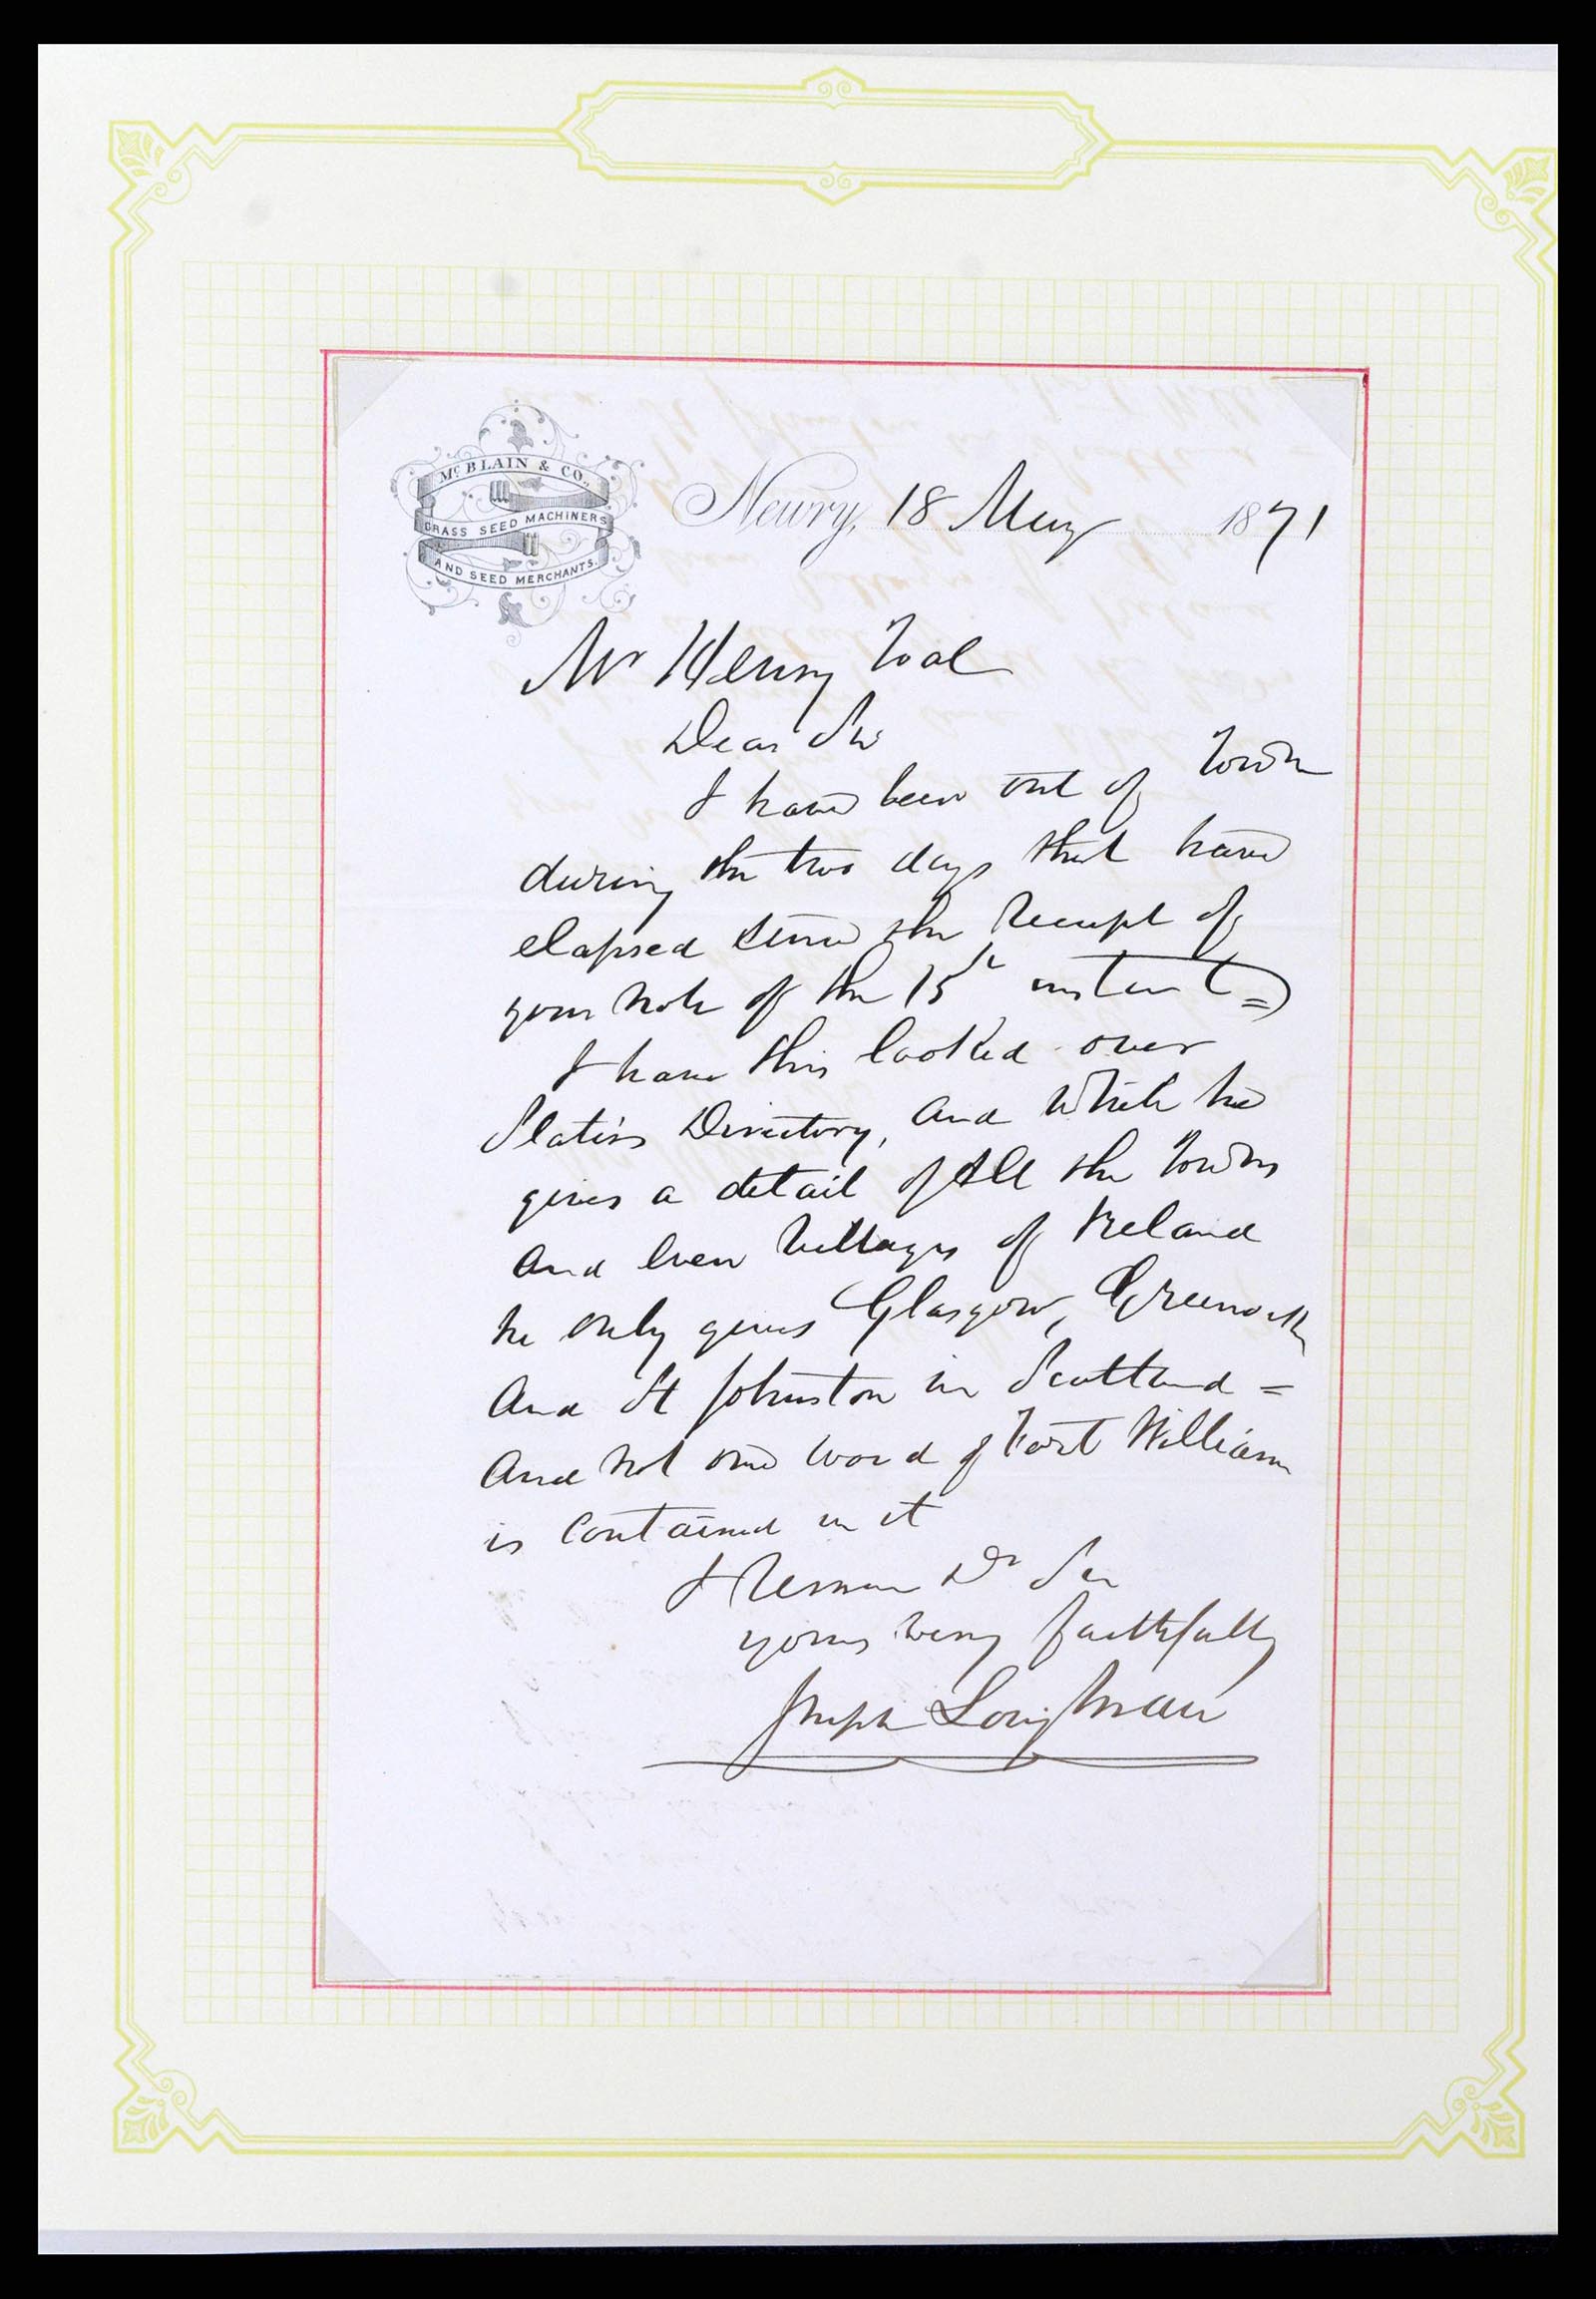 McBLAIN & CO.,
GRASS SEED MACHINERS
AND SEED MERCHANTS.
Newry, 18 May 1871
Mr Henry Toal
Dear Sir
I have been out of Town
during the two days that have
elapsed since the receipt of
your note of the 15th instant =
I have this looked over
Slaters Directory, and while he
gives a detail of All the Towns
and even Villages of Ireland
he only gives Glasgow, Greenock
and St Johnston in Scotland =
and not one word of Fort William
is Contained in it
I Remain Dr Sir
yours very faithfully
Joseph Longman